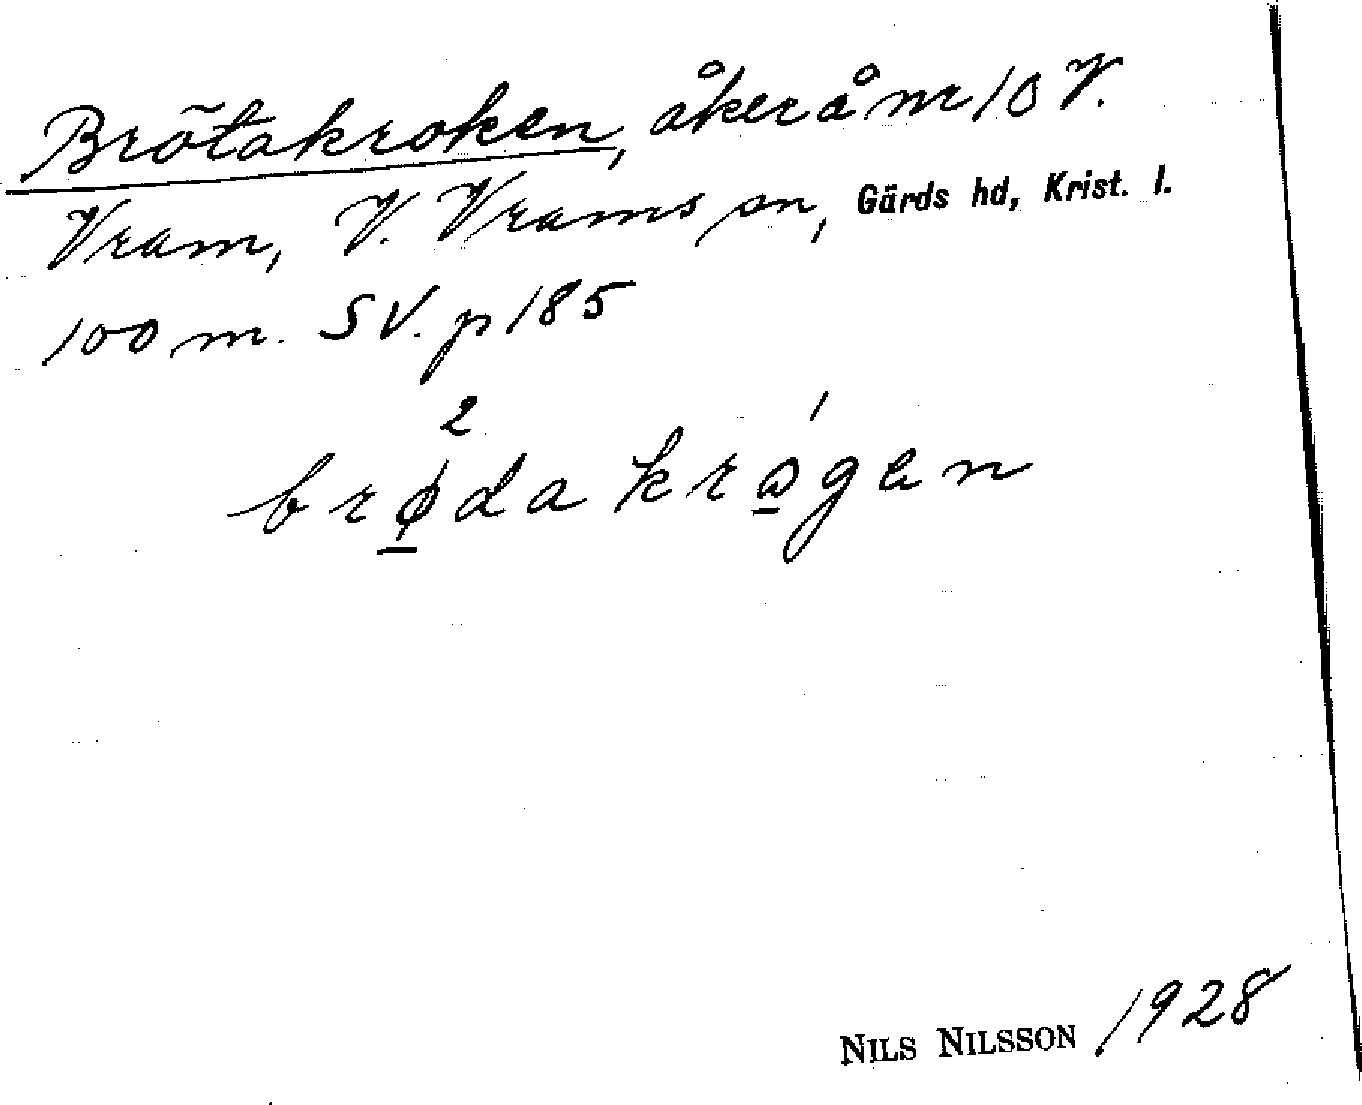 Brötakroken, åker å nr 10 V.
Vram, V. Vrams sn, Gärds hd, Krist. l.
100 m. SV. p 185
2
brødakrågen
NILS NILSSON 1928